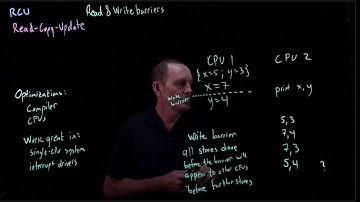 RCU
Read & Write barriers
Read-Copy-Update
CPU 1
{x=5; y=3}
x=7
write barrier
y=4
CPU 2
print x, y
5,3
7,4
7,3
5,4 ?
Optimizations:
Compiler
CPUs
Work great in:
single-CPU system
interrupt drivers
Write barrier
all stores done
before the barrier will
appear to other CPUs
before further stores